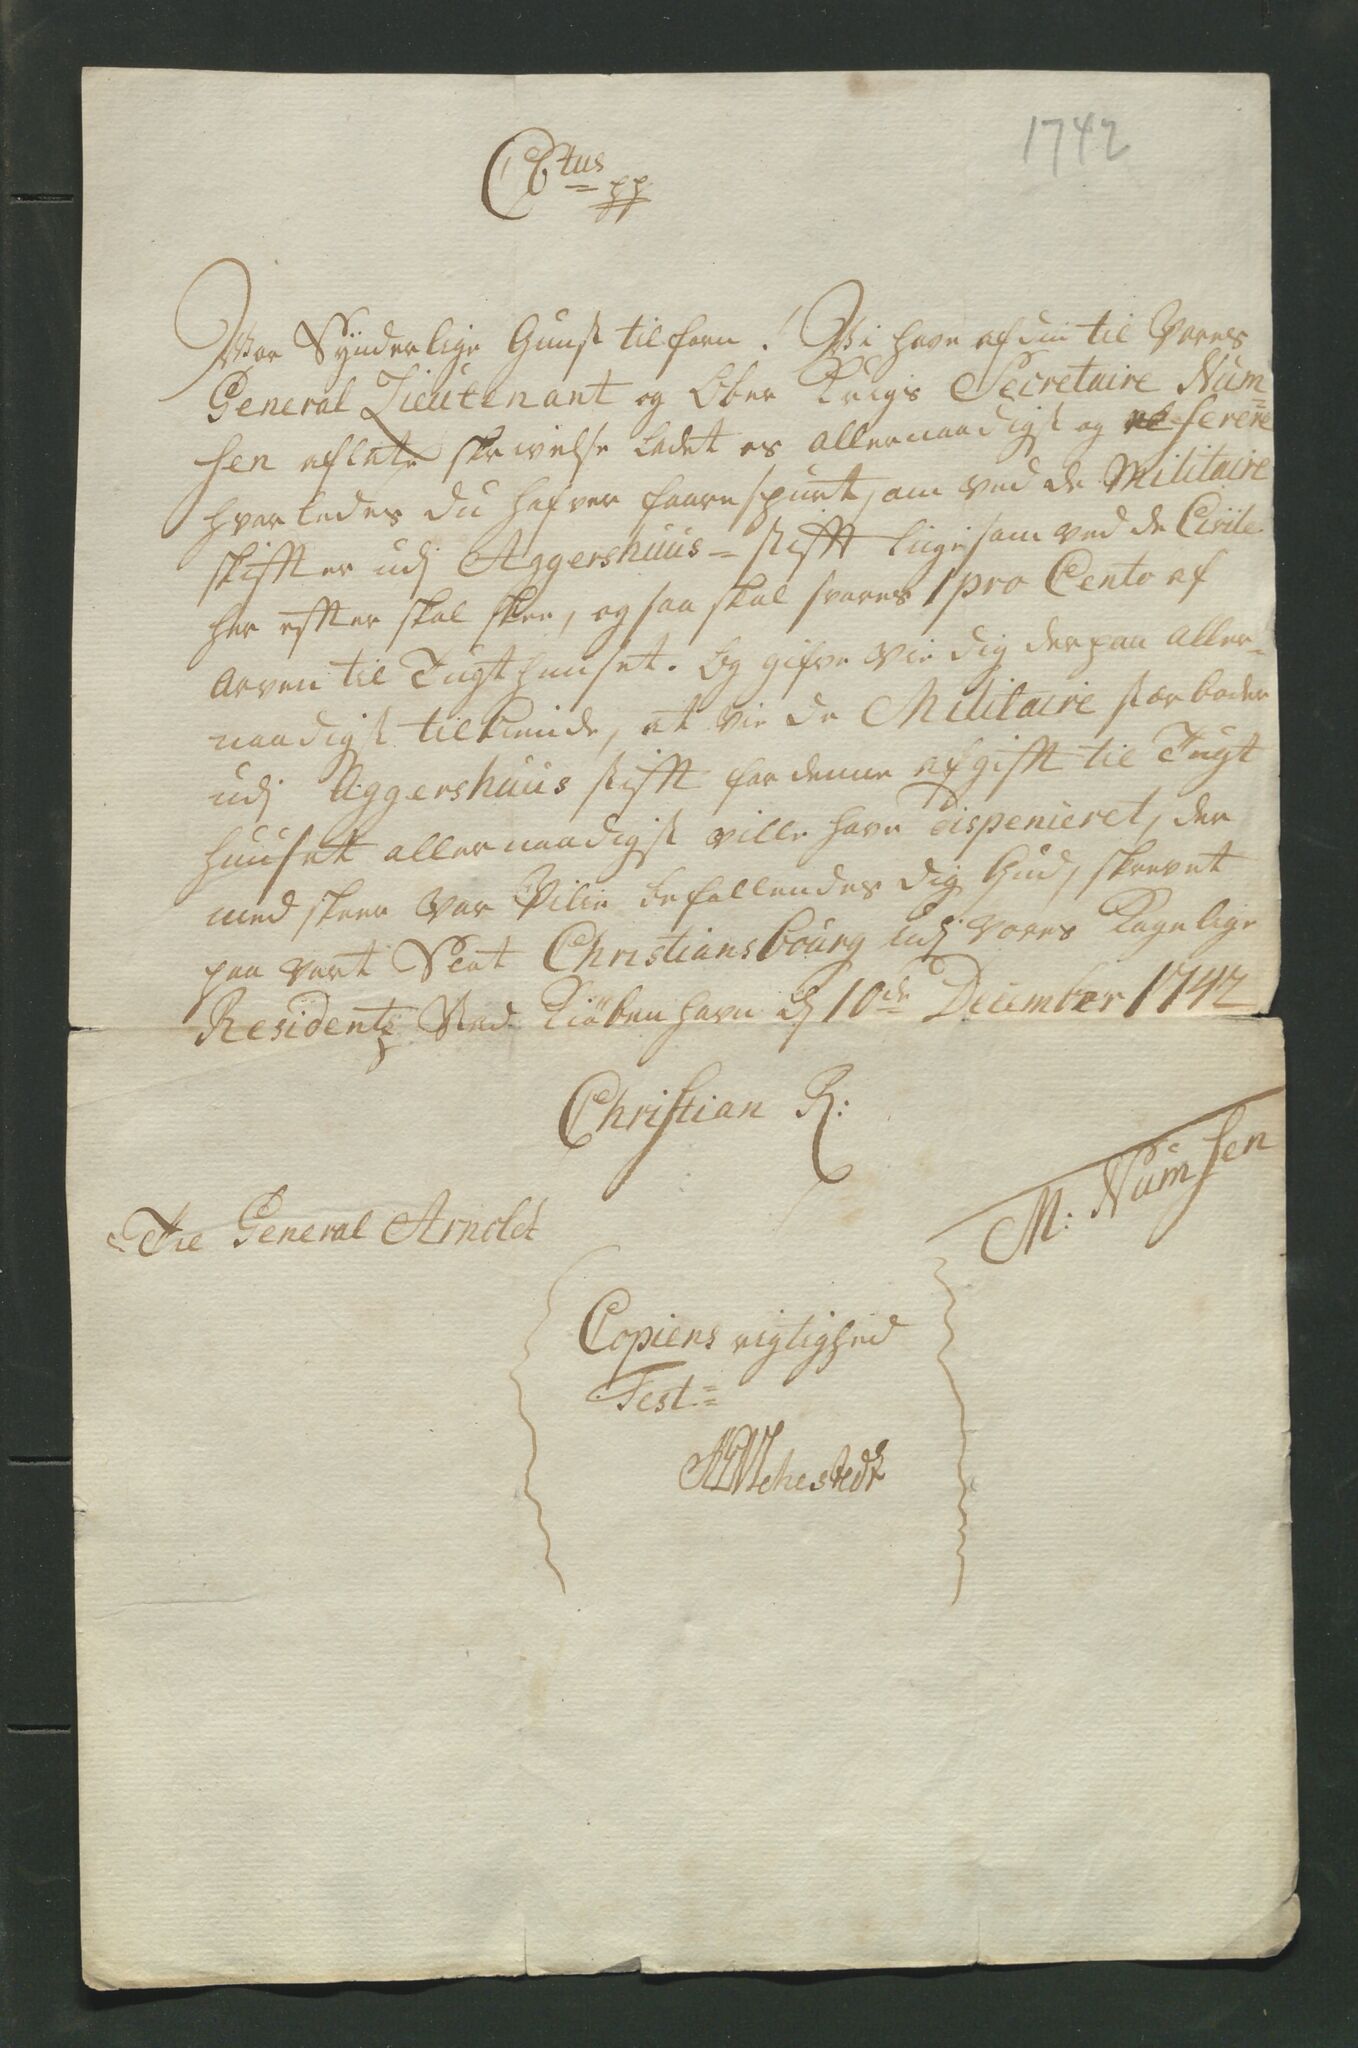 1742
C 6tus pp
Vor Synderlige Gunst tilforn! Vi have af din til Vores
General Lieutenant og Ober Krigs Secretaire Num=
sen afladte skrivelse ladet os allernaadigst og referere
hvorledes du hafver forespurt, om ved de Militaire
skiffter udj Aggershuus=stifft ligesom ved de Civile
her effter skal skee, og saa skal svares 1 pro Cento af
Arven til Tugthuuset. Og gifve Vie dig derpaa aller=
naadigst tilkiende, at Vie de Militaire stærboder
udj Aggershuus stifft for denne afgifft til Tugt
huuset allernaadigst ville have Dispenseret, der
med skeer Vor Villie befallendes dig Gud, skrevet
paa Vort Slot Christiansbourg udj Vores Kongelige
Residentz Stad Kiöbenhavn d 10de December 1742
Christian R:
M: Numsen
Til General Arnoldt
Copiens rigtighed
Test=